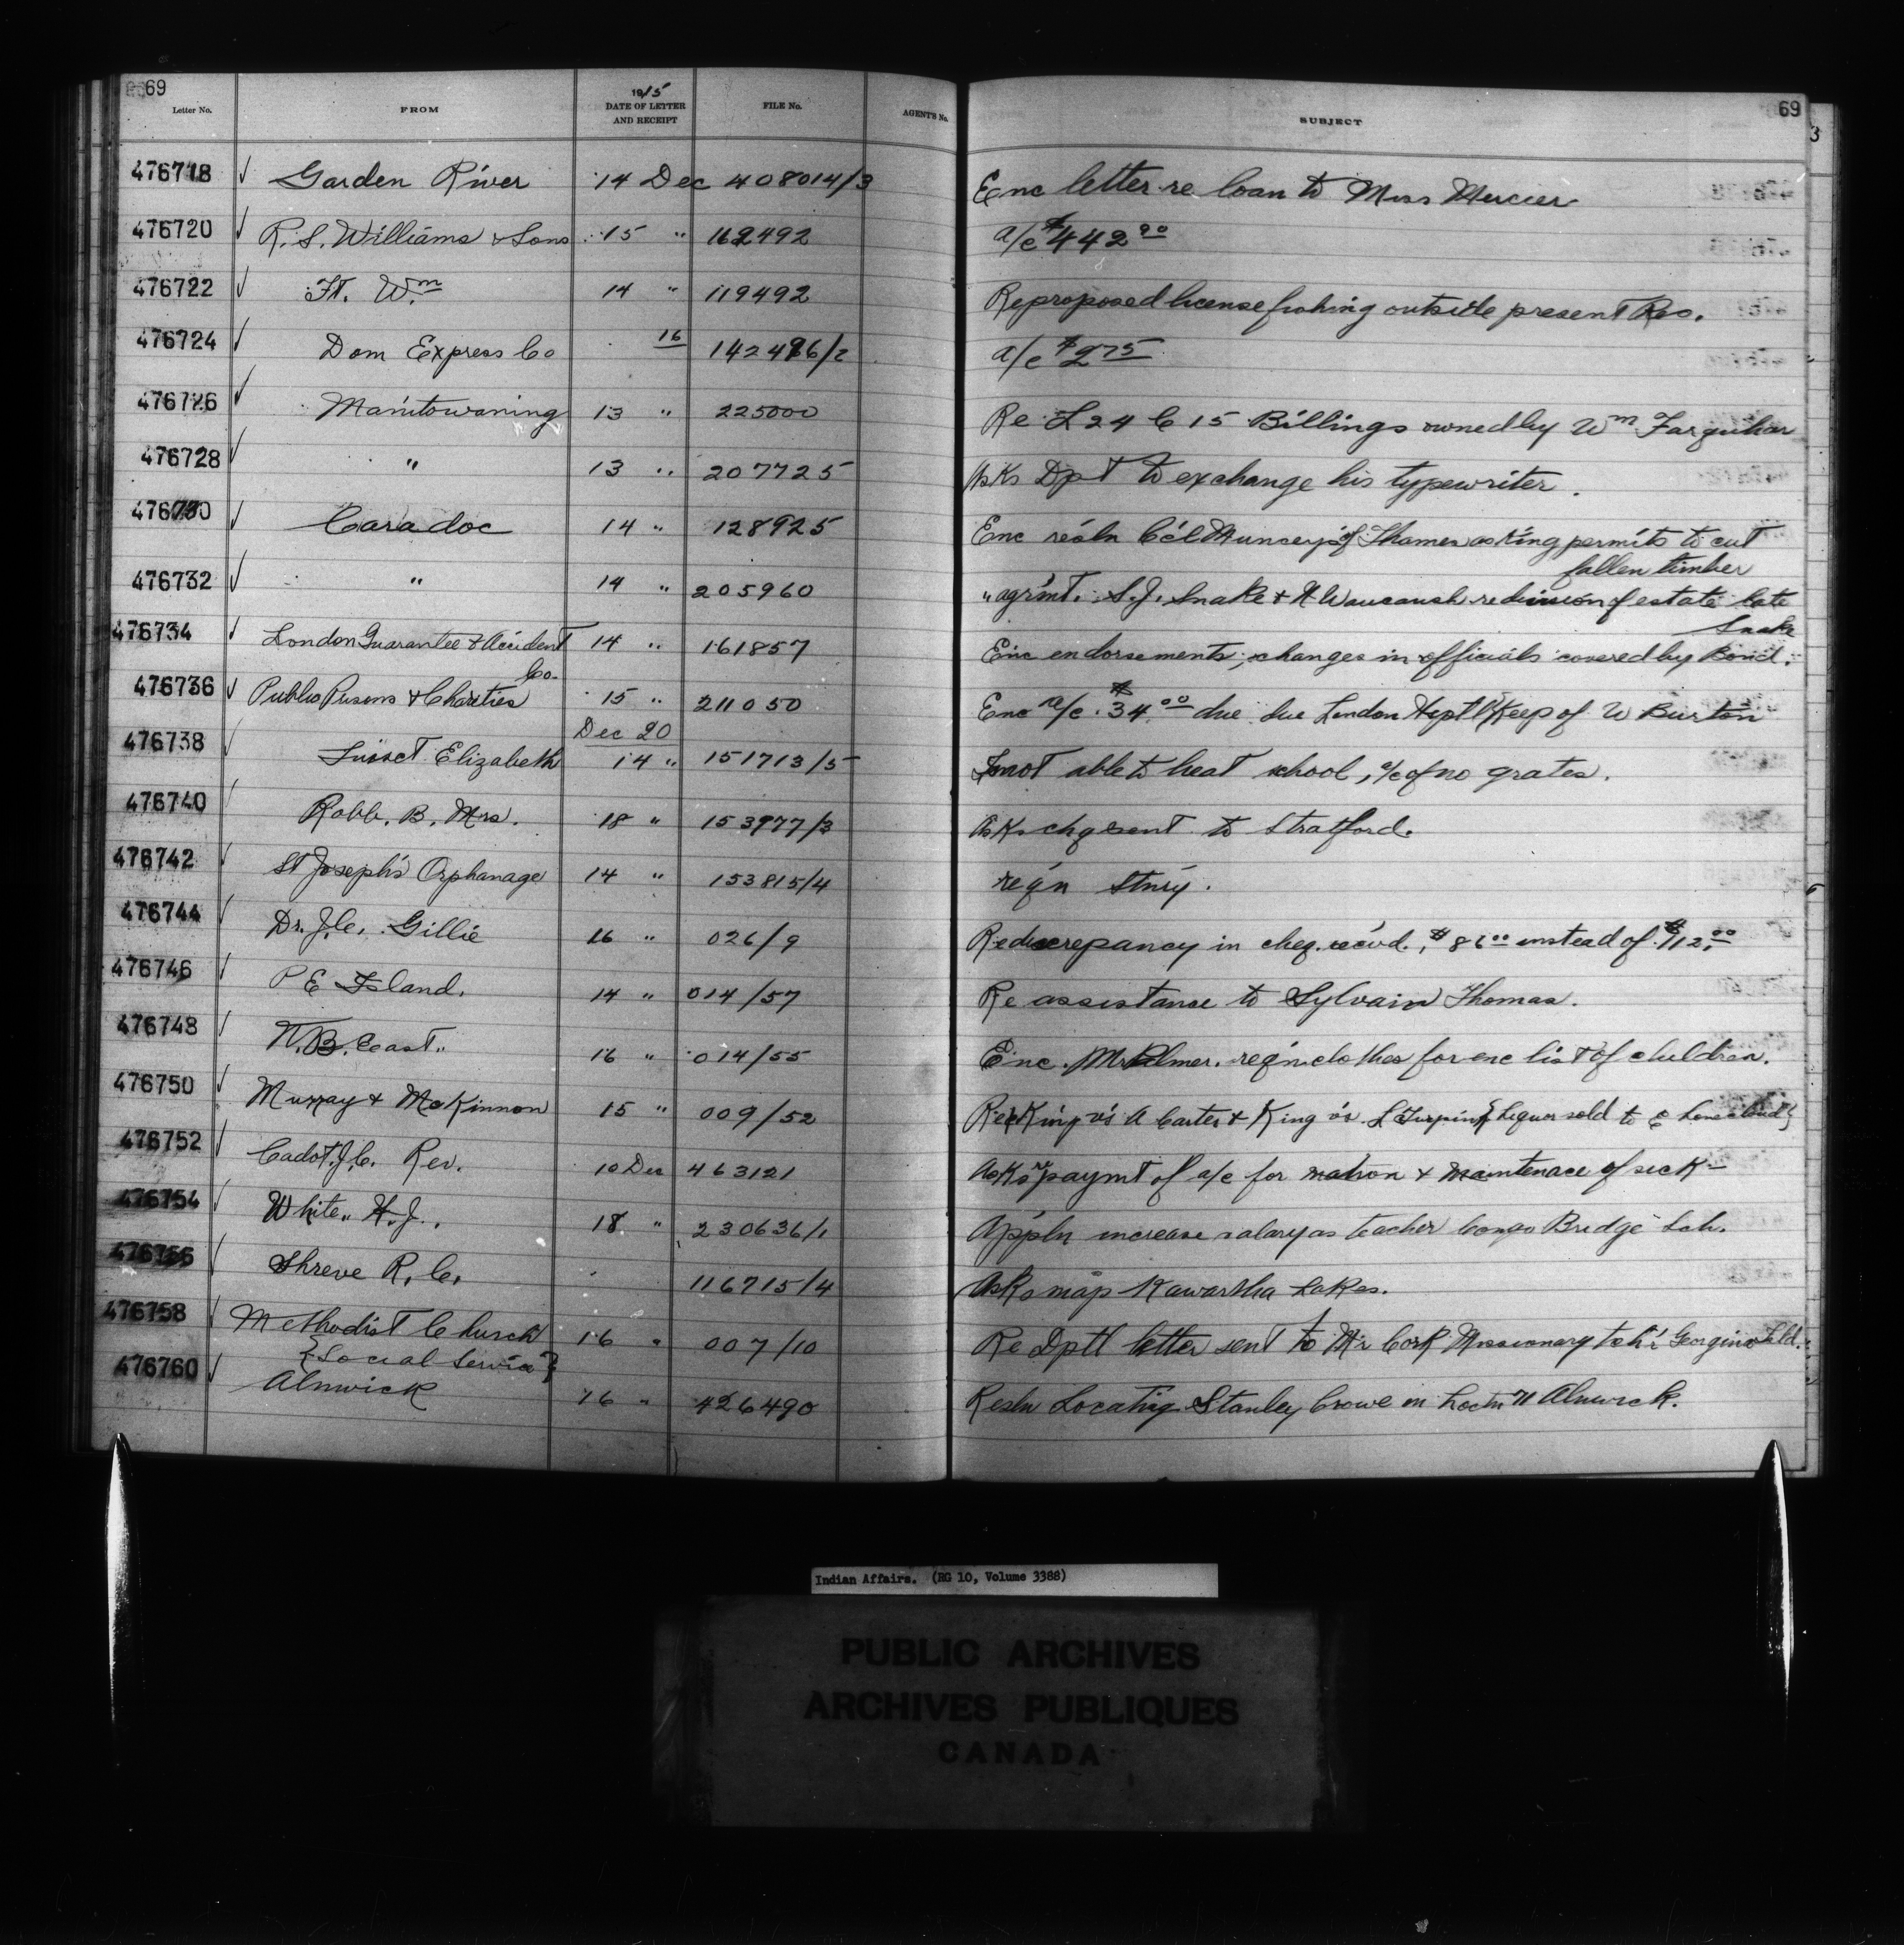 69
69
Letter No. FROM 1915 DATE OF LETTER AND RECEIPT FILE No. AGENT'S No. SUBJECT
476718 Garden River 14 Dec 408014/3 Enc letter re loan to Miss Mercier
476720 R. S. Williams & Sons 15 " 162492 a/c $442 90
476722 Ft. Wm 14 " 119492 Re proposed license fishing outside present Res.
476724 Dom Express Co 16 142486/2 a/c $2 75
476726 Manitowaning 13 " 225000 Re L 24 C 15 Billings owned by Wm Farquhar
476728 " 13 " 207725 Asks Dpt to exchange his typewriter.
476730 Caradoc 14 " 128925 Enc resln Ccl Munceys of Thames asking permits to cut
fallen timber
476732 " 14 " 205960 " agrmt. S. J. Snake & N Waucaush re division of estate late
Snake
476734 London Guarantee & Accident Co. 14 " 161857 Enc endorsements, changes in officials covered by Bond.
476736 Public Prisons & Charities 15 " 211050 Enc a/c $34 00 due London Hsptl Keep of W Burton
Dec 20
476738 Elizabeth 14 " 151713/5 not able to heat school, a/c of no grates.
476740 Robb. B. Mrs. 18 " 153977/3 Asks chq sent to Stratford.
476742 St Joseph's Orphanage 14 " 153815/4 reqn Stny.
476744 Dr. J. C. Gillie 16 " 026/9 Re discrepancy in cheq. recvd., $86 00 instead of $112. 00
476746 P E Island. 14 " 014/57 Re assistance to Sylvain Thomas.
476748 N. B. East. 16 " 014/55 Enc. Mr Palmer. reqn clothes for enc list of children.
476750 Murray & McKinnon 15 " 009/52 Re King vs A Carter & King vs. L Turpin { Liquor sold to
476752 Cadot. J. C. Rev. 10 Dec 463121 Asks re paymt of a/c for matron & maintenace of sick
476754 White. H. J. 18 " 230636/1 Appln increase salary as teacher Bridge Sch.
476756 Shreve R. C. 116715/4 Asks map Kawartha Lakes.
476758 Methodist Church 16 " 007/10 Re Dptl letter sent to Mr Cork Missionary tchr Georgina Isld.
{Social Service}
476760 Alnwick 16 " 426490 Resln Locating Stanley Crowe on Alnwick.
Indian Affairs. (RG 10, Volume 3388)
PUBLIC ARCHIVES
ARCHIVES PUBLIQUES
CANADA